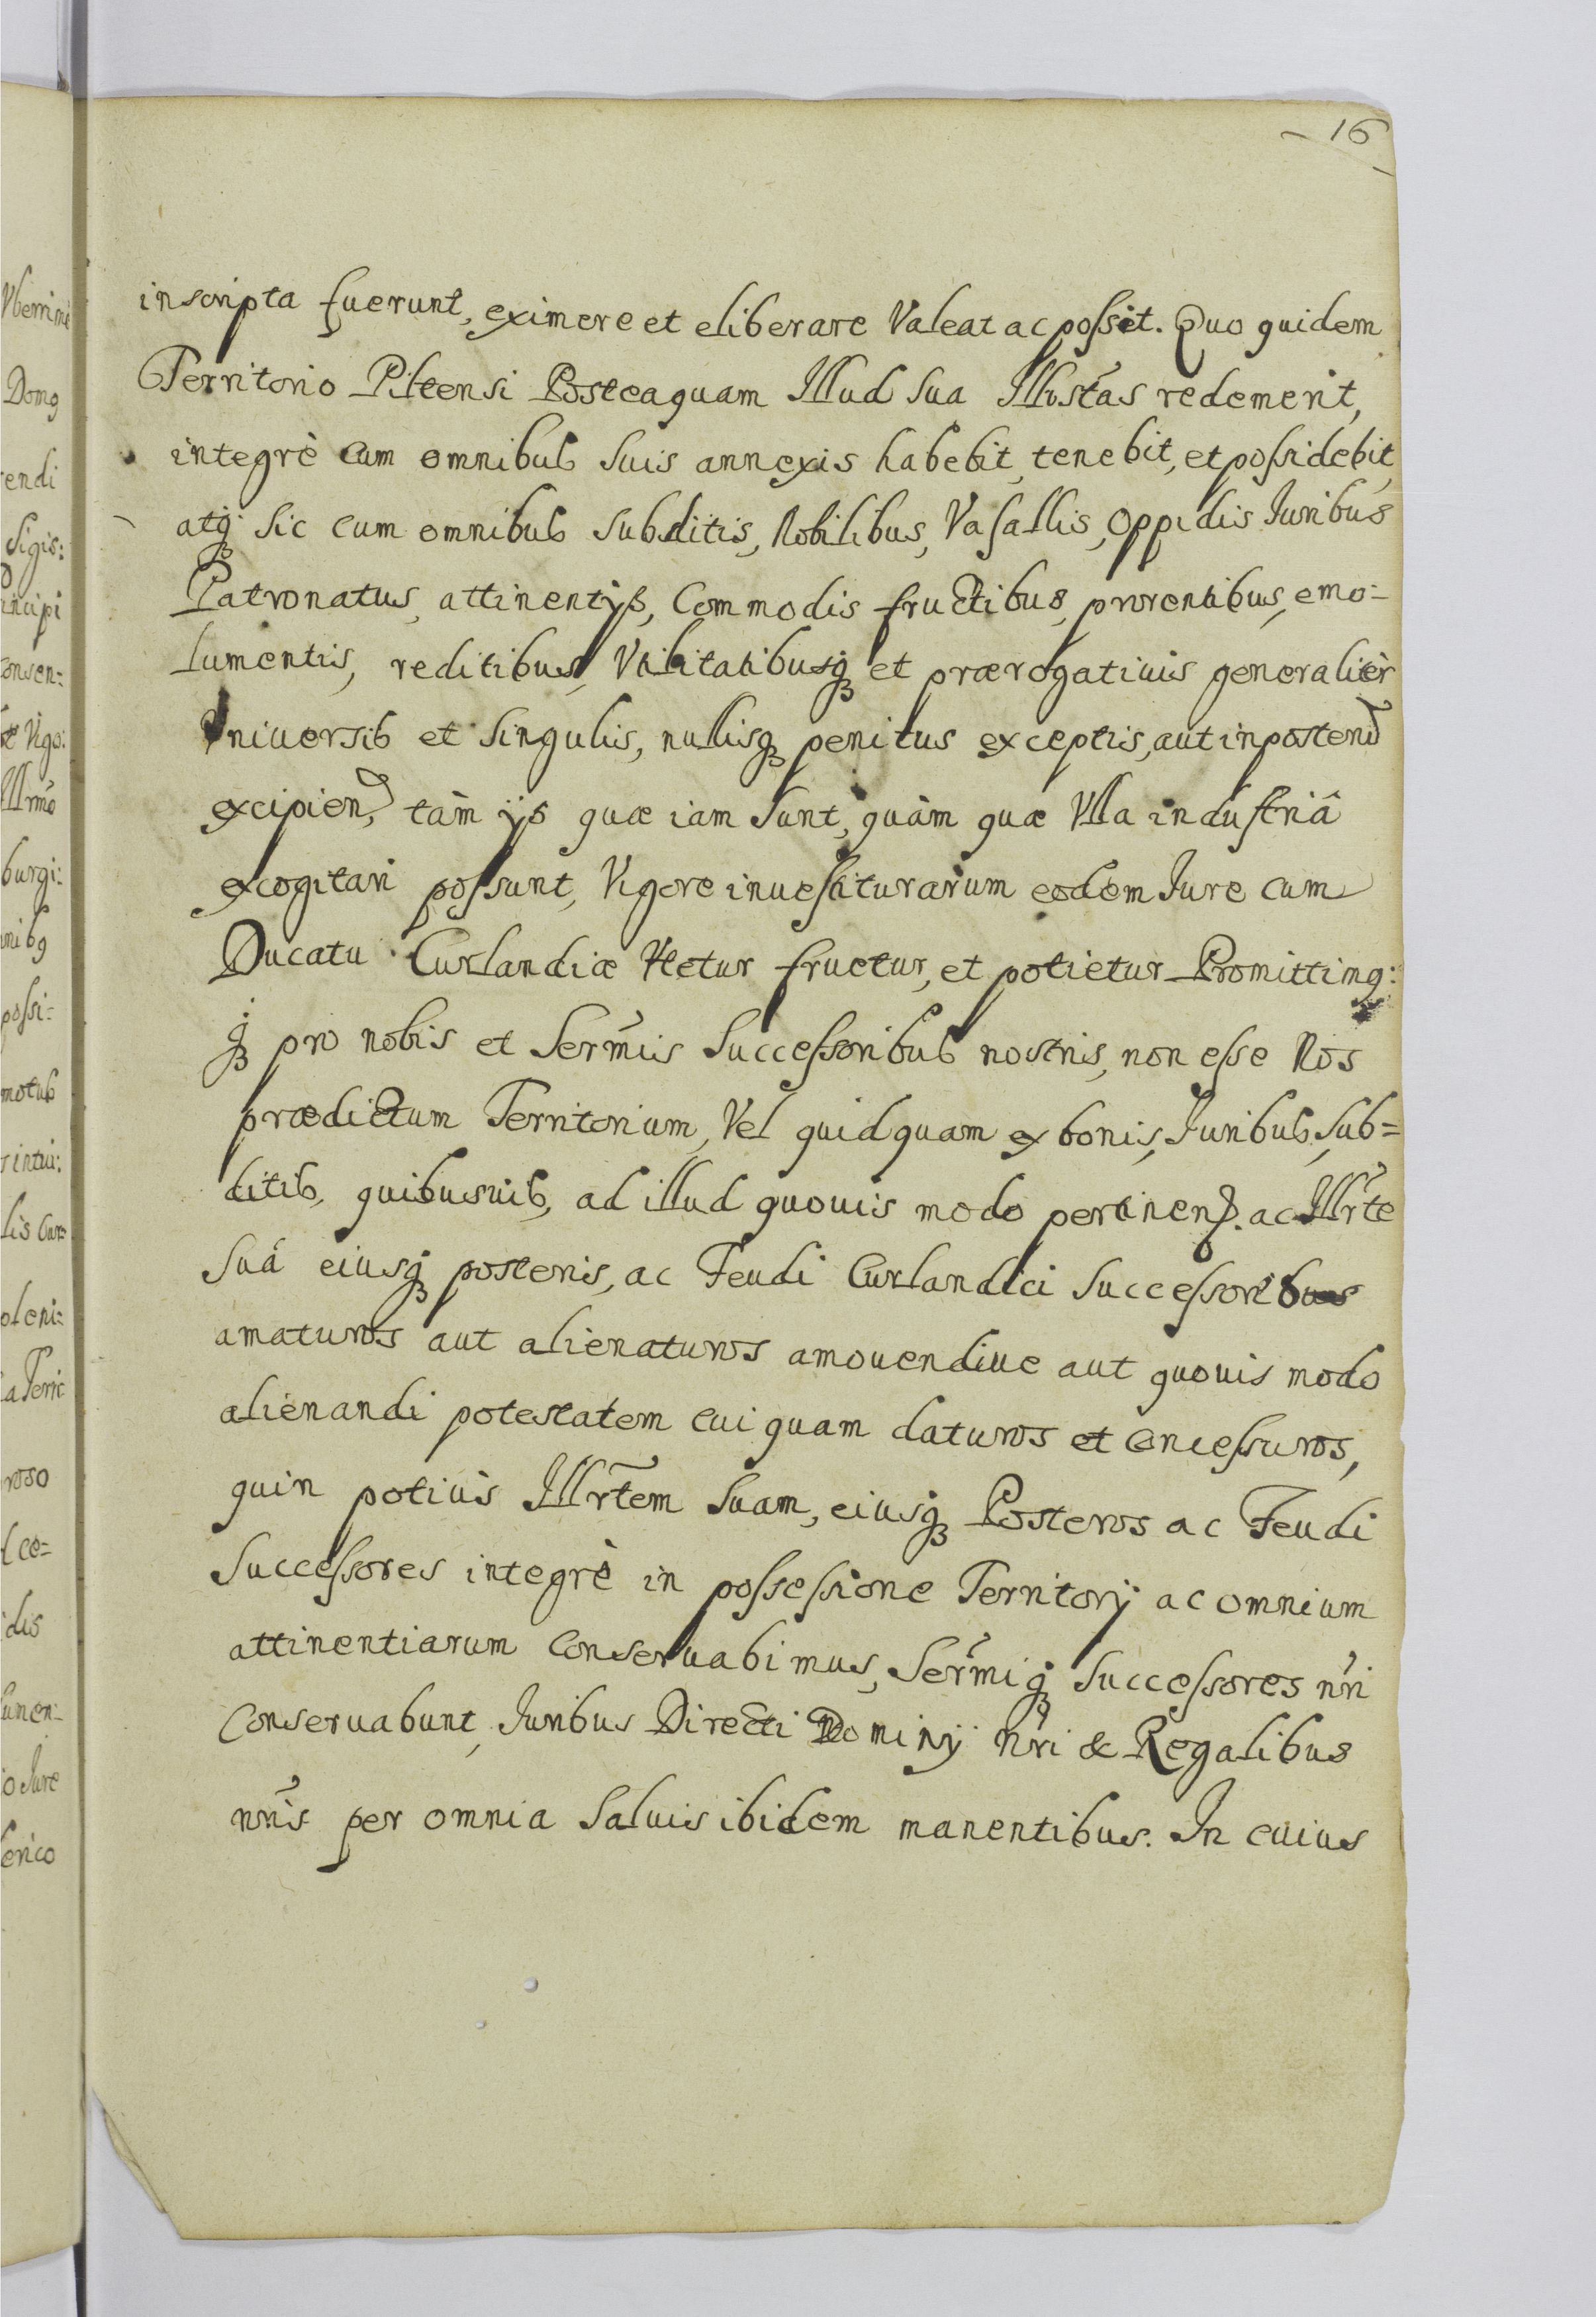 16
inscripta fuerunt, eximere et eliberare Valeat ac possit. Quo quidem
Territorio Piltensi Posteaquam Illud sua Illustas redemerit,
integrè cum omnibus suis annexis habebit, tenebit, et possidebit,
atq; sic cum omnibus subditis, Nobilibus, Vasallis, Oppidis Juribus
Patronatus, attinentijs, Commodis fructibus, proventibus, emo=
lumentis, reditibus, Vtilitatibusq; et prærogatiuis generalitèr
Vniuersis et singulis, nullisq; penitus exceptis, aut inposterũ
excipien̄, tàm ijs quæ iam sunt, quàm quæ Vlla industriâ
excogitari possunt, Vigore inuestiturarum eodem Jure cum
Ducatu Curlandiæ Vtetur fruetur, et potietur Promittimq:
q; pro nobis et Serm̃is Successoribus nostris, non esse Nos
prædictum Territorium, Vel quidquam ex bonis, Juribus, sub=
ditis, quibusuis, ad illud quouis modo pertinen̄. ac Illr̃te
suâ eiusq; posteris, ac Feudi Curlandici Successoribus
amaturos aut alienaturos amouendiue aut quouis modo
alienandi potestatem cuiquam daturos et concessuros,
quin potius Illr̃tem suam, eiusq; Posteros ac Feudi
Successores integrè in possessione Territorij ac omnium
attinentiarum conseruabimus, Serm̃iq; Successores nr̃i
Conseruabunt, Juribus Directi Dominij nr̃i & Regalibus
nr̃is per omnia Saluis ibidem manentibus. In cuius